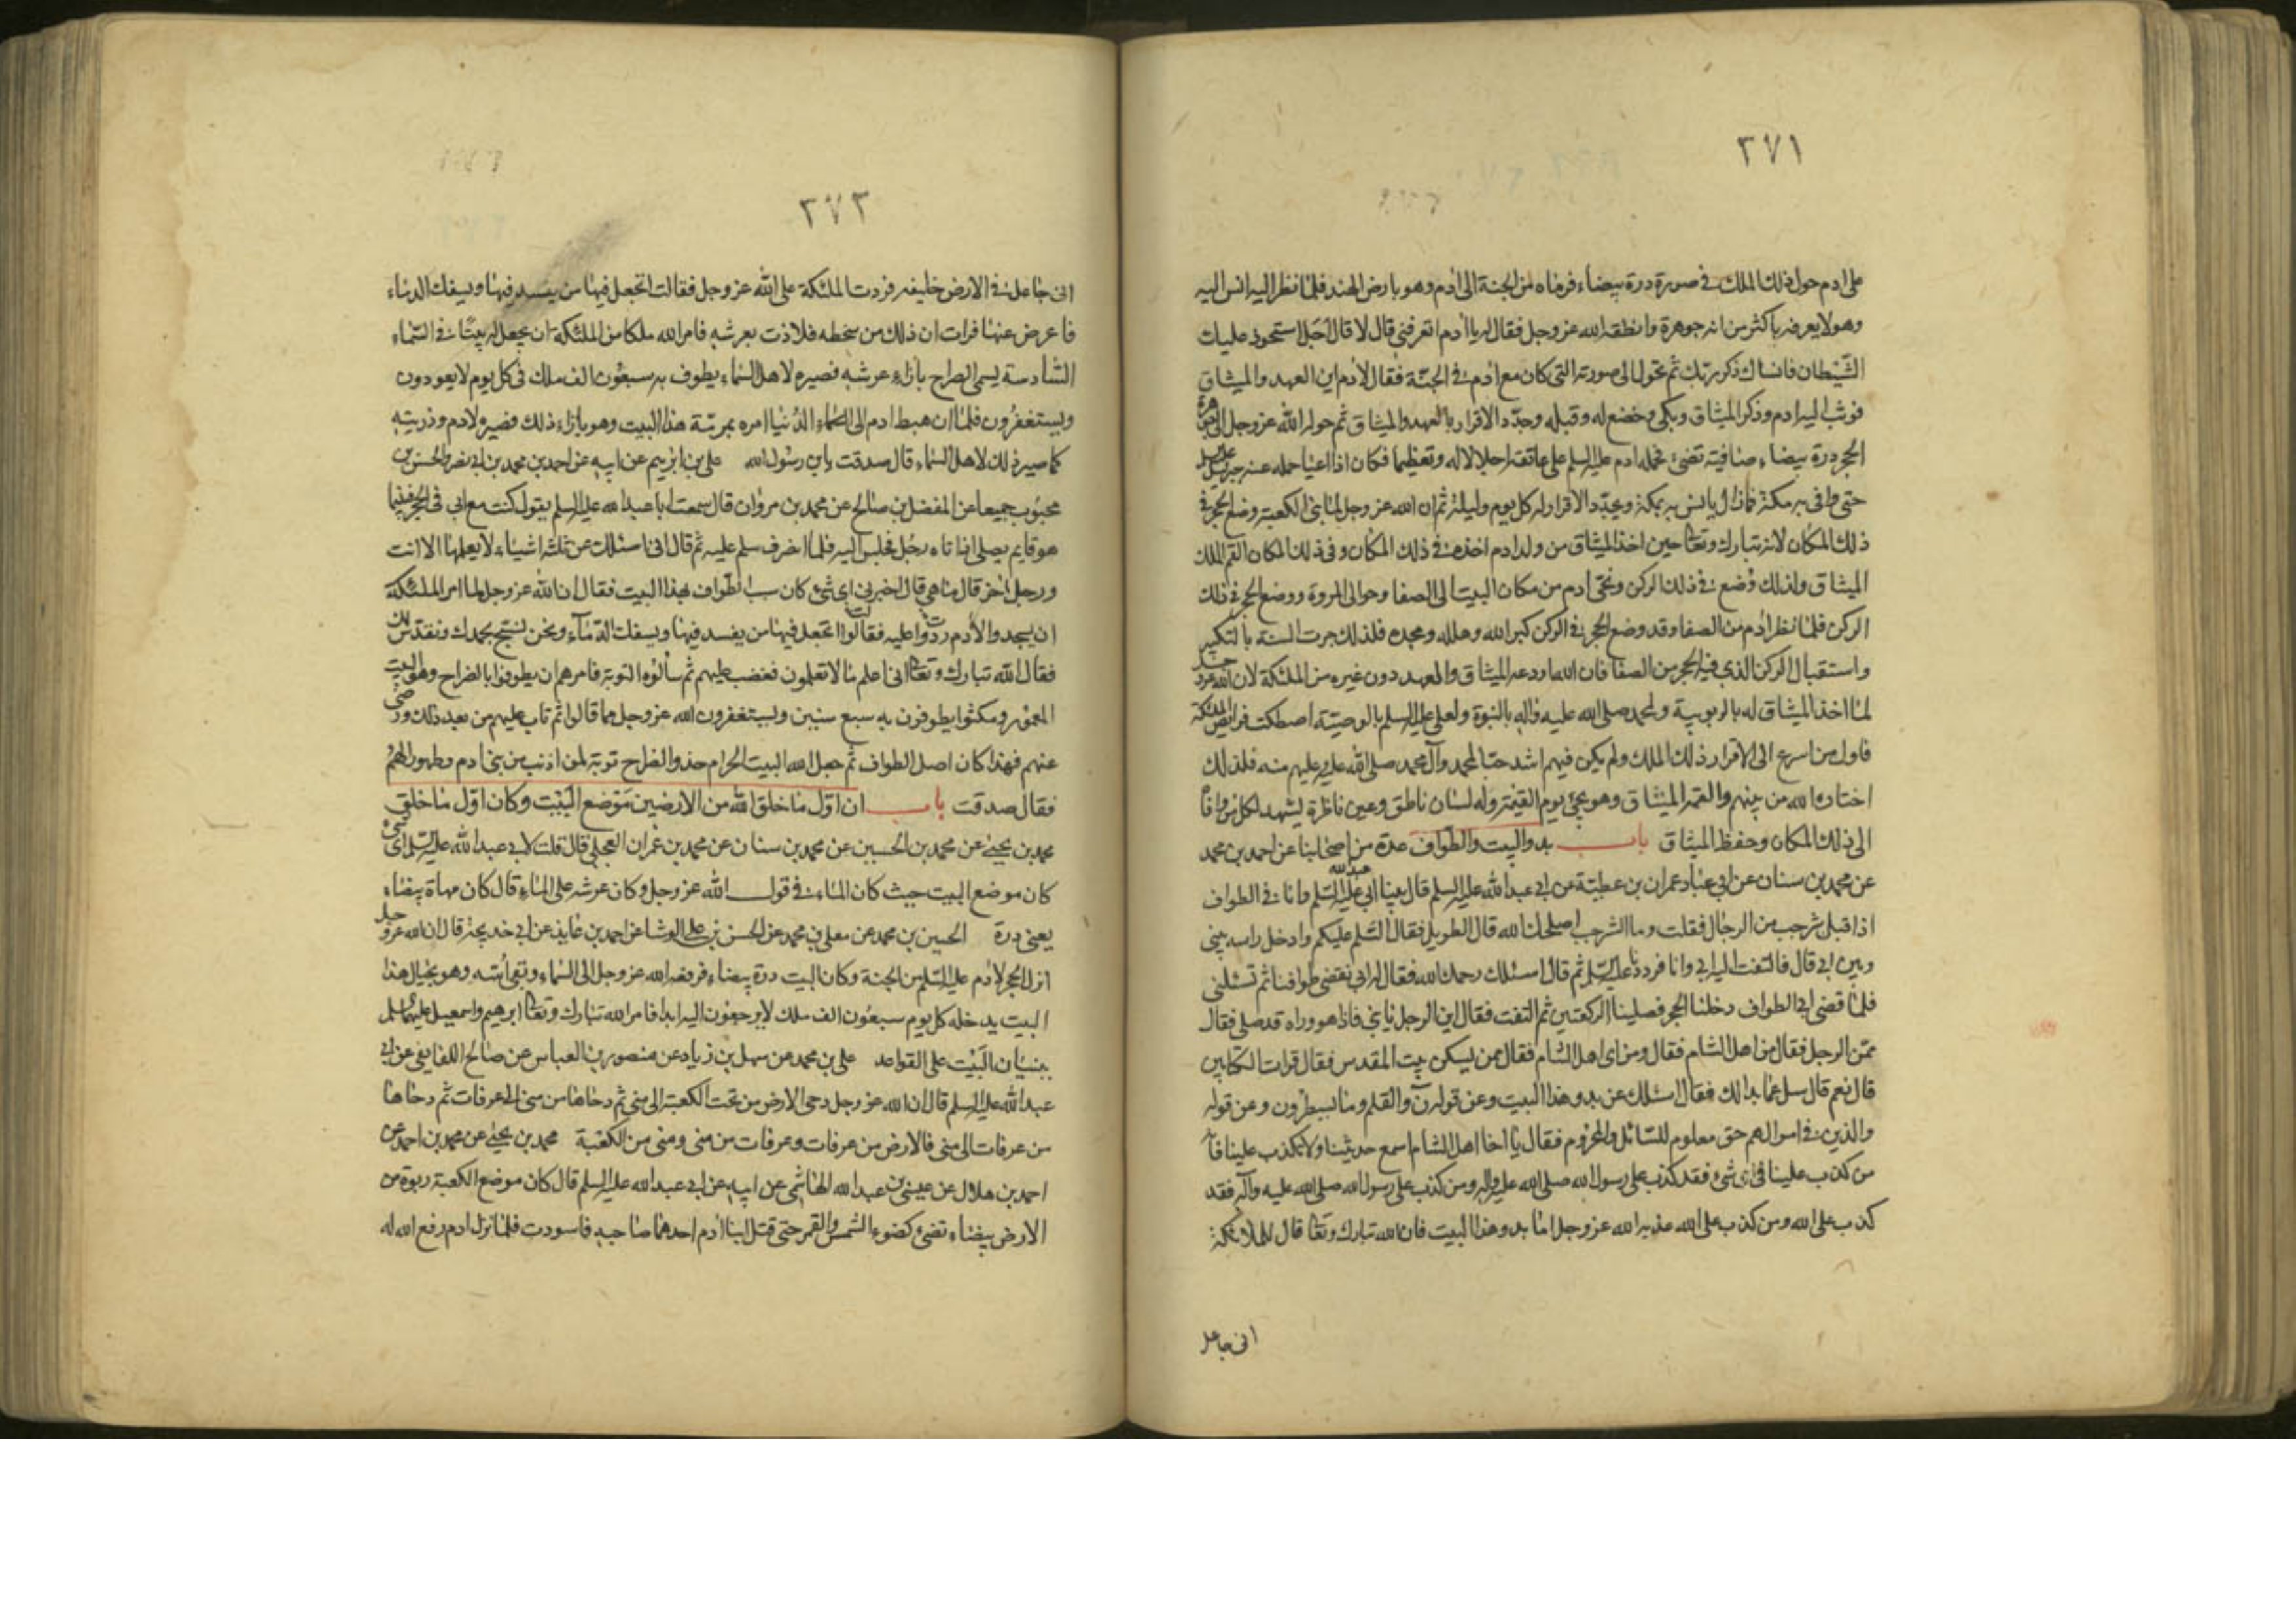 ٢٧١
على ادم حول ذلك الملك في صورة درة بيضاء فرماه من الجنة الى ادم وهو بارض الهند فلما نظر اليه انس اليه
وهو لا يعرفه باكثر من انه جوهرة وانطقه الله عز وجل فقال له يا ادم اتعرفني قال لا قال اجل استحوذ عليك
الشيطان فانساك ذكر ربك ثم تحول الى صورته التي كان مع ادم في الجنة فقال لادم اين العهد والميثاق
فوثب اليه ادم وذكر الميثاق وبكى وخضع له وقبله وجدد الاقرار بالعهد والميثاق ثم حوله الله عز وجل الى جوهرة
الحجر درة بيضاء صافية تضئ فحمله ادم عليه السلم على عاتقه اجلالا له وتعظيما فكان اذا اعيا حمله عنه جبرئيل
حتى وافى به مكة فما زال يانس به بمكة ويجدد الاقرار له كل يوم وليلة ثم ان الله عز وجل لما بنى الكعبة وضع الحجر في
ذلك المكان لانه تبارك وتعا حين اخذ الميثاق من ولد ادم اخذه في ذلك المكان وفي ذلك المكان القم الملك
الميثاق ولذلك وضع في ذلك الركن ونحى ادم من مكان البيت الى الصفا وحوا الى المروة ووضع الحجر في ذلك
الركن فلما نظر ادم من الصفا وقد وضع الحجر في الركن كبر الله وهلله ومجده فلذلك جرت السنة بالتكبير
واستقبال الركن الذي فيه الحجر من الصفا فان الله اودعه الميثاق والعهد دون غيره من الملئكة لان الله عز وجل
لما اخذ الميثاق له بالربوبية ولمحمد صلى الله عليه واله بالنبوة ولعلي عليه السلم بالوصية اصطكت فرايص الملئكة
فاول من اسرع الى الاقرار ذلك الملك ولم يكن فيهم اشد حبا لمحمد وآل محمد صلى الله عليه وعليهم منه فلذلك
اختاره الله من بينهم والقمه الميثاق وهو يجئ يوم القيمة وله لسان ناطق وعين ناظرة ليشهد لكل من وافاه
الى ذلك المكان وحفظ الميثاق باب بدو البيت والطواف عدة من اصحابنا عن احمد بن محمد
عن محمد بن سنان عن ابي عباد عمران بن عطية عن ابي عبد الله عليه السلم قال بينا ابي عليه السلم وانا في الطواف
اذ اقبل شرجب من الرجال فقلت وما الشرجب اصلحك الله قال الطويل فقال السلم عليكم وادخل راسه بيني
وبين ابي قال فالتفت اليه ابي وانا فرددنا عليه السلم ثم قال اسئلك رحمك الله فقال له ابي نقضي طوافنا ثم تسئلني
فلما قضى ابي الطواف دخلنا الحجر فصلينا الركعتين ثم التفت فقال اين الرجل يا بني فاذا هو وراه قد صلى فقال
ممن الرجل فقال من اهل الشام فقال ومن اى اهل الشام فقال ممن يسكن بيت المقدس فقال قرات الكتابين
قال نعم قال سل عما بدا لك فقال اسئلك عن بدو هذا البيت وعن قوله ن والقلم وما يسطرون وعن قوله
والذين في اموالهم حق معلوم للسائل والمحروم فقال يا اخا اهل الشام اسمع حديثنا ولا تكذب علينا فانه
من كذب علينا في اى شئ فقد كذب على رسول الله صلى الله عليه واله ومن كذب على رسول الله صلى الله عليه وآله فقد
كذب على الله ومن كذب على الله عذبه الله عز وجل اما بدو هذا البيت فان الله تبارك وتعا قال للملائكة
انى جاعل
٢٧٢
انى جاعل في الارض خليفه فردت الملئكة على الله عز وجل فقالت اتجعل فيها من يفسد فيها ويسفك الدماء
فاعرض عنها فرات ان ذلك من سخطه فلاذت بعرشه فامر الله ملكا من الملئكة ان يجعل له بيتا في السماء
السادسة يسمى الضراح بازاء عرشه فصيره لاهل السماء يطوف به سبعون الف ملك في كل يوم لا يعودون
ويستغفرون فلما ان هبط ادم الى السماء الدنيا امره بمرمة هذا البيت وهو بازاء ذلك فصيره لادم وذريته
كما صير ذلك لاهل السماء قال صدقت يابن رسول الله على بن ابرهيم عن ابيه عن احمد بن محمد بن ابي نصر والحسن بن
محبوب جميعا عن المفضل بن صالح عن محمد بن مروان قال سمعت ابا عبد الله عليه السلم يقول كنت مع ابي في الحجر فبينما
هو قايم يصلى اذ اتاه رجل فجلس اليه فلما انصرف سلم عليه ثم قال اني اسئلك عن ثلثة اشياء لا يعلمها الا انت
ورجل اخر قال ما هي قال اخبرني اى شئ كان سبب الطواف بهذا البيت فقال ان الله عز وجل لما امر الملئكة
ان يسجدوا لادم ردوا عليه فقالوا اتجعل فيها من يفسد فيها ويسفك الدماء ونحن نسبح بحمدك ونقدس لك
فقال الله تبارك وتعا انى اعلم ما لا تعلمون فغضب عليهم ثم سألوه التوبة فامرهم ان يطوفوا بالضراح وهو البيت
المعمور ومكثوا يطوفون به سبع سنين ويستغفرون الله عز وجل مما قالوا ثم تاب عليهم من بعد ذلك ورضى
عنهم فهذا كان اصل الطواف ثم جعل الله البيت الحرام حذو الضراح توبة لمن اذنب من بنى ادم وطهورا لهم
فقال صدقت باب ان اول ما خلق الله من الارضين موضع البيت وكان اول ما خلق
محمد بن يحيى عن محمد بن الحسين عن محمد بن سنان عن محمد بن عمران العجلي قال قلت لابي عبد الله عليه السلم اى شئ
كان موضع البيت حيث كان الماء في قول الله عز وجل وكان عرشه على الماء قال كان مهاة بيضاء
يعنى درة الحسين بن محمد عن معلى بن محمد عن الحسن بن على الوشا عن احمد بن عايذ عن ابي خديجة قال ان الله عز وجل
انزل الحجر لادم عليه السلم من الجنة وكان البيت درة بيضاء فرفعه الله عز وجل الى السماء وبقى اسه وهو بحيال هذا
البيت يدخله كل يوم سبعون الف ملك لا يرجعون اليه ابدا فامر الله تبارك وتعا ابرهيم واسمعيل عليهما السلم
ببنيان البيت على القواعد على بن محمد عن سهل بن زياد عن منصور بن العباس عن صالح اللفايفي عن ابي
عبد الله عليه السلم قال ان الله عز وجل دحى الارض من تحت الكعبة الى منى ثم دحاها من منى الى عرفات ثم دحاها
من عرفات الى منى فالارض من عرفات وعرفات من منى ومنى من الكعبة محمد بن يحيى عن محمد بن احمد عن
احمد بن هلال عن عيسى بن عبد الله الهاشمي عن ابيه عن ابي عبد الله عليه السلم قال كان موضع الكعبة ربوة من
الارض بيضاء تضئ كضوء الشمس والقمر حتى قتل ابنا ادم احدهما صاحبه فاسودت فلما نزل ادم رفع الله له